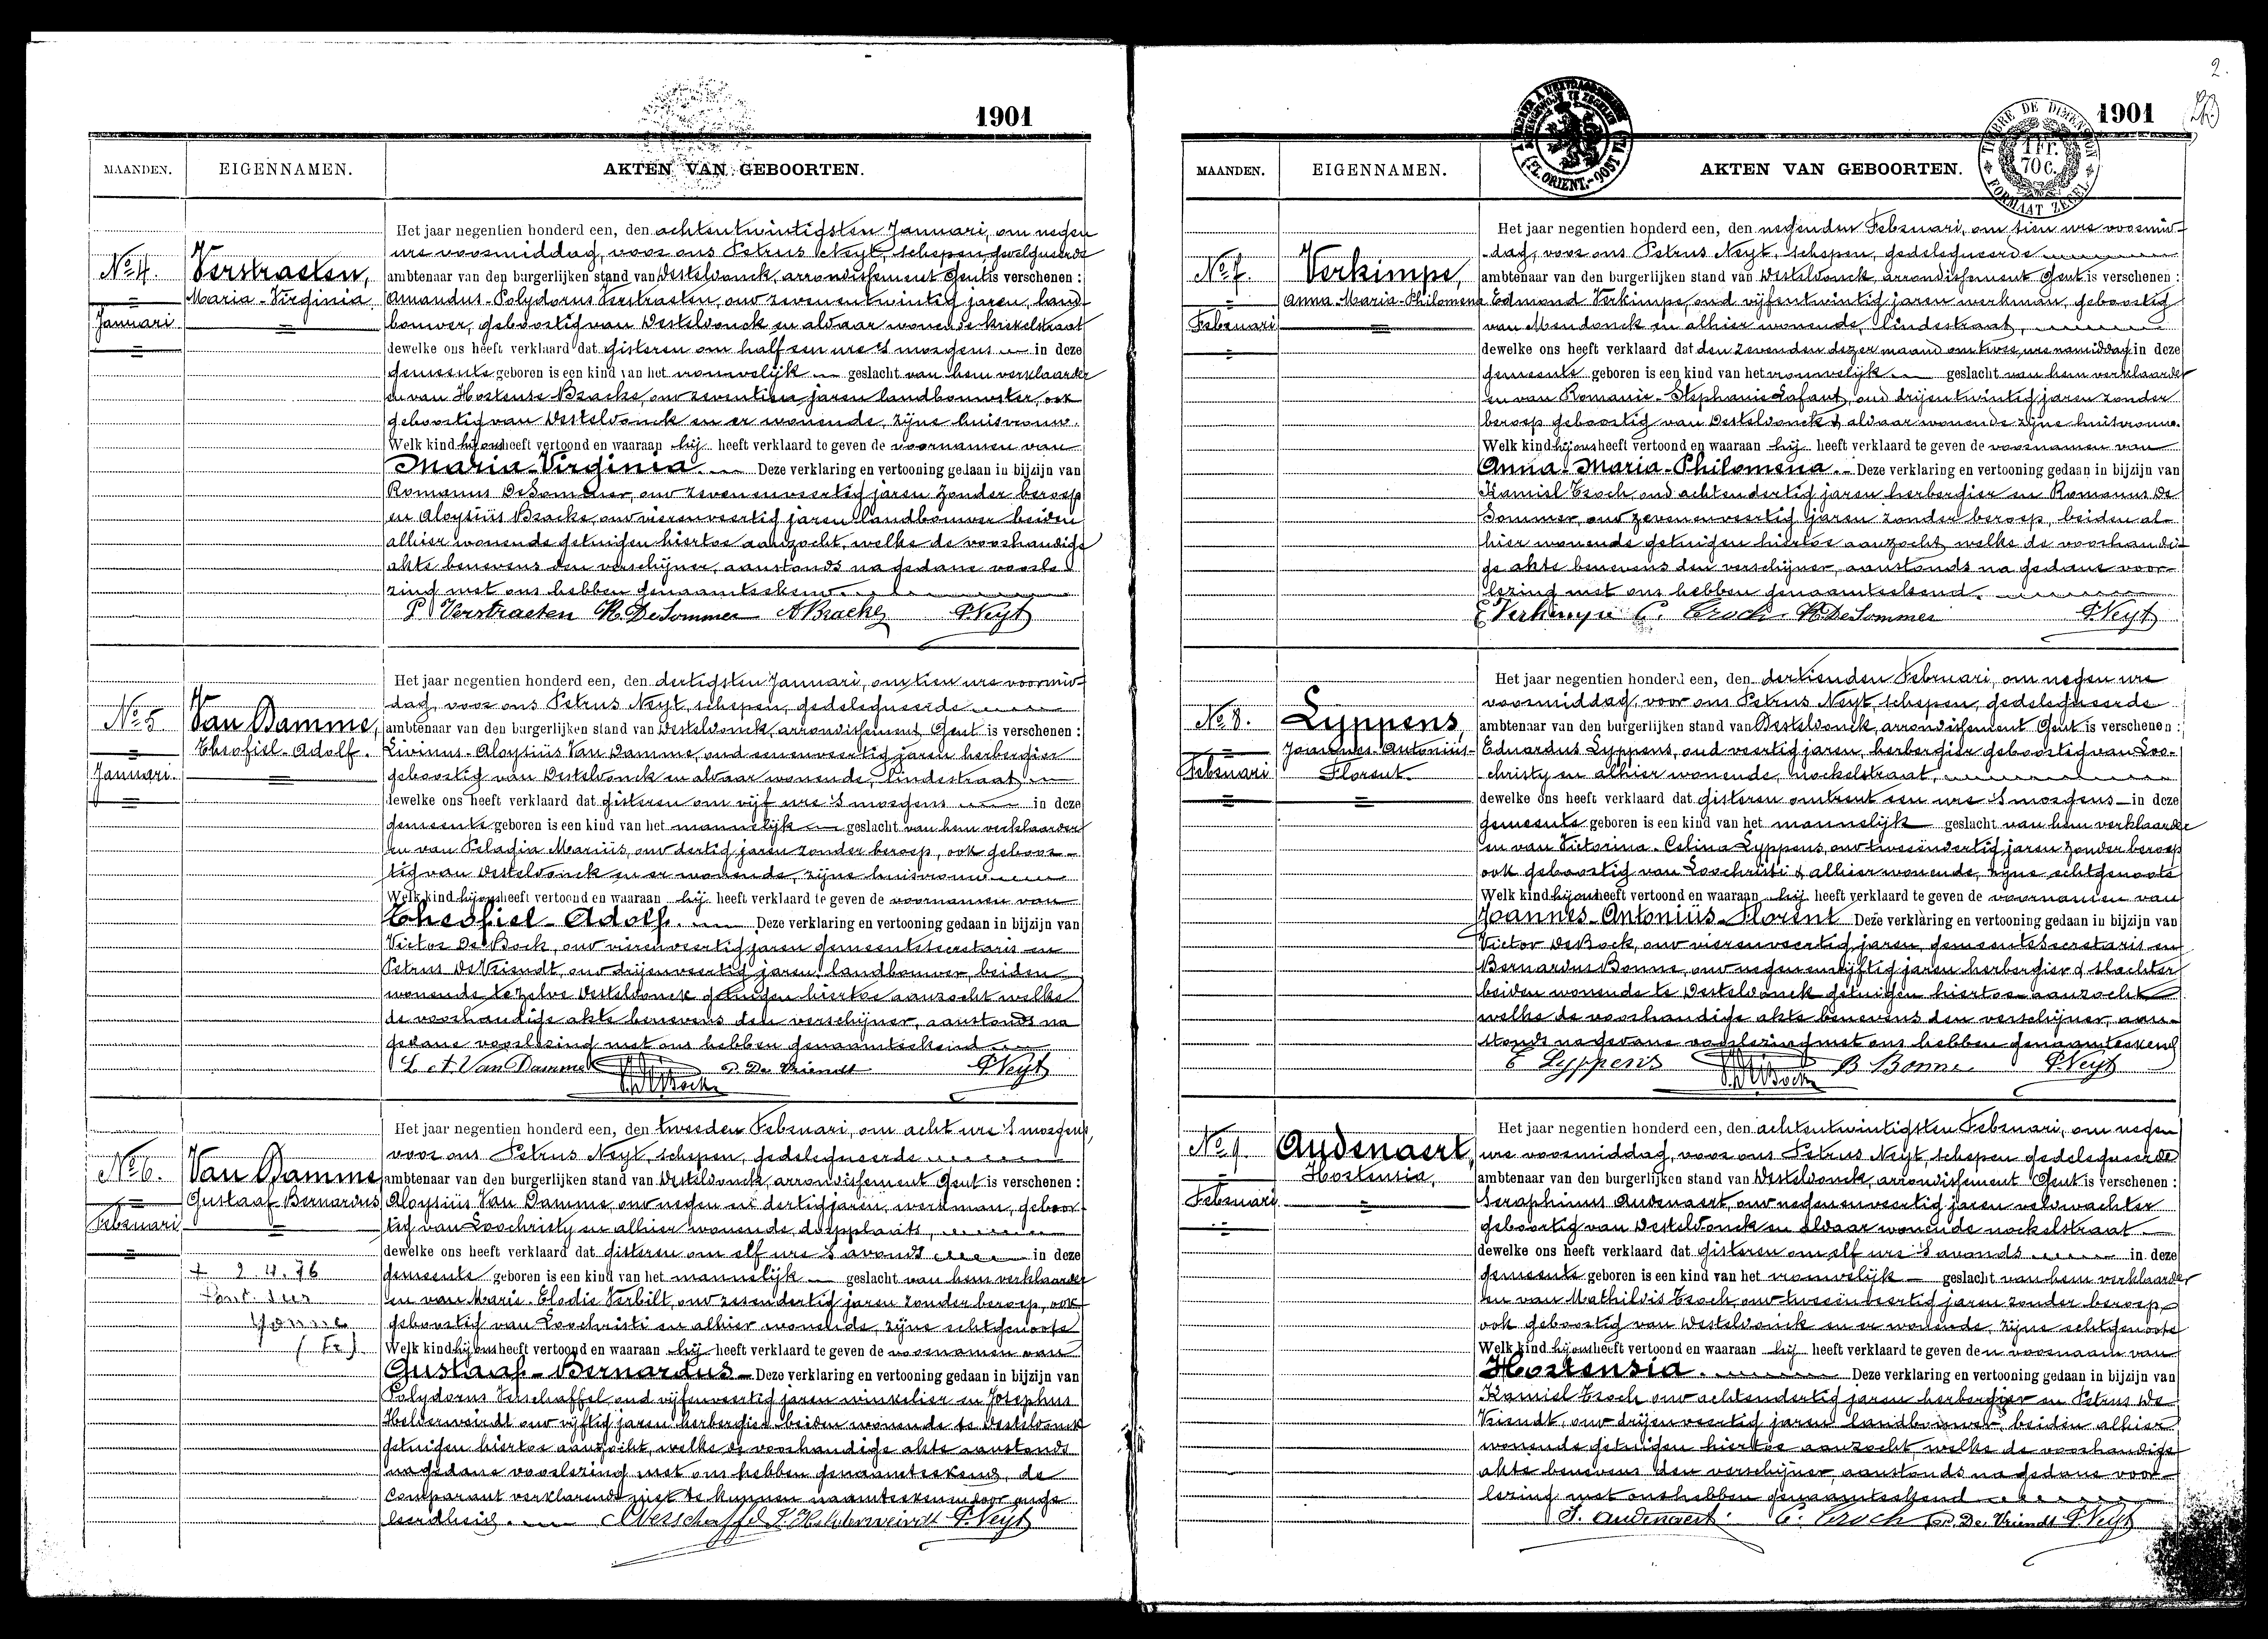 1901
MAANDEN. EIGENNAMEN. AKTEN VAN GEBOORTEN.
No 4.
Januari
Verstraeten,
Maria-Virginia
Het jaar negentien honderd een, den achtentwintigsten Januari, om negen
ure voormiddag, voor ons Petrus Neyt, schepen, gedelegueerde
ambtenaar van den burgerlijken stand van Desteldonck, arrondissement Gent is verschenen :
Amandus-Polydorus Verstraeten, oud zevenentwintig jaren, land-
bouwer, geboortig van Desteldonck en aldaar wonende
dewelke ons heeft verklaard dat gisteren om half een ure 's morgens in deze
gemeente geboren is een kind van het vrouwelijk geslacht van hem verklaarder
en van Hortense Bracke, oud jaren landbouwster, ook
geboortig van Desteldonck en er wonende, zijne huisvrouw.
Welk kind hij ons heeft vertoond en waaraan hij heeft verklaard te geven de voornamen van
Maria-Virginia. Deze verklaring en vertooning gedaan in bijzijn van
Romanus DeSommer, oud zevenenveertig jaren zonder beroep
en Aloysiüs Bracke, oud vierenveertig jaren landbouwer beiden
alhier wonende getuigen hiertoe aanzocht, welke de voorhandige
akte benevens den verschijner, aanstonds na gedane voorle
zing met ons hebben genaamteekend.
P Verstraeten R. DeSommer A Bracke P. Neyt
No 5
Januari.
Van Damme,
Theofiel-Adolf.
Het jaar negentien honderd een, den dertigsten Januari, om tien ure voormid-
dag, voor ons Petrus Neyt, schepen, gedelegueerde
ambtenaar van den burgerlijken stand van Desteldonck, arrondissement Gent is verschenen :
Livinus-Aloysiüs Van Damme, oud eenenveertig jaren herbergier
geboortig van Desteldonck en aldaar wonende, lindestraat
dewelke ons heeft verklaard dat gisteren om vijf ure 's morgens in deze
gemeente geboren is een kind van het mannelijk geslacht van hem verklaarder
en van Pelagia Mariüs, oud dertig jaren zonder beroep, ook geboor-
tig van Desteldonck en er wonende, zijne huisvrouw
Welk kind hij ons heeft vertoond en waaraan hij heeft verklaard te geven de voornamen van
Theofiel-Adolf. Deze verklaring en vertooning gedaan in bijzijn van
Victor De Bock, oud vierenveertig jaren gemeentesecretaris en
Petrus DeVriendt, oud drijenveertig jaren, landbouwer, beiden
wonende te zelve Desteldonck getuigen hiertoe aanzocht welke
de voorhandige akte benevens den verschijner, aanstonds na
gedane voorlezing met ons hebben genaamteekend
L A Van Damme P. De Vriendt P. Neyt
V. De Bock
No 6.
Februari
Van Damme
Gustaaf-Bernardus
+ 2.4.76
Yonne
(Fr)
Het jaar negentien honderd een, den tweeden Februari, om acht ure 's morgens,
voor ons Petrus Neyt, schepen, gedelegueerde
ambtenaar van den burgerlijken stand van Desteldonck, arrondissement Gent is verschenen :
Aloysiüs Van Damme, oud negen en dertig jaren, werkman, geboor-
tig van Loochristy en alhier wonende, dorpplaats,
dewelke ons heeft verklaard dat gisteren om elf ure 's avonds in deze
gemeente geboren is een kind van het mannelijk geslacht van hem verklaarder
en van Marie-Elodie Verbilt, oud zesendertig jaren zonder beroep, ook
geboortig van Loochristi en alhier wonende, zijne echtgenoote
Welk kind hij ons heeft vertoond en waaraan hij heeft verklaard te geven de voornamen van
Gustaaf-Bernardus Deze verklaring en vertooning gedaan in bijzijn van
Polydorus Verschaffel oud vijfenveertig jaren winkelier en Josephus
Helderweirdt oud vijftig jaren herbergier beiden wonende te Desteldonck
getuigen hiertoe aanzocht, welke de voorhandige akte aanstonds
na gedane voorlezing met ons hebben genaamteekend, de
comparant verklarende niet te kunnen naamteekenen door onge
leerdheid. Verschaffel J. Helderweirdt P. Neyt
2.
1901
TIMBRE DE DIMENSION
1 Fr.
70 C.
FORMAAT ZEGEL
(FL. ORIENT.-OOST VL.)
MAANDEN. EIGENNAMEN. AKTEN VAN GEBOORTEN.
No 7.
Februari
Verkimpe,
Anna-Maria-Philomena
Het jaar negentien honderd een, den negenden Februari, om tien ure voormid-
dag, voor ons Petrus Neyt, schepen, gedelegueerde
ambtenaar van den burgerlijken stand van Desteldonck, arrondissement Gent is verschenen :
Edmond Verkimpe, oud vijfentwintig jaren werkman, geboortig
van Mendonck en alhier wonende, lindestraat,
dewelke ons heeft verklaard dat den zevenden dezer maand om twee ure namiddag in deze
gemeente geboren is een kind van het vrouwelijk geslacht van hem verklaarder
en van Romanie-Stephanie Lafaut, oud drijentwintig jaren zonder
beroep geboortig van Desteldonck & aldaar wonende zijne huisvrouw.
Welk kind hij ons heeft vertoond en waaraan hij heeft verklaard te geven de voornamen van
Anna-Maria-Philomena. Deze verklaring en vertooning gedaan in bijzijn van
Kamiel Troch, oud achtendertig jaren herbergier en Romanus De
Sommer, oud zevenenveertig jaren zonder beroep, beiden al-
hier wonende getuigen hiertoe aanzocht welke de voorhandi-
ge akte benevens den verschijner, aanstonds na gedane voor-
lezing met ons hebben genaamteekend.
E Verkimpe C. Troch R. DeSommer P. Neyt
No 8.
Februari
Lyppens,
Joannes-Antoniüs-
Florent.
Het jaar negentien honderd een, den dertienden Februari, om negen ure
voormiddag, voor ons Petrus Neyt, schepen, gedelegueerde
ambtenaar van den burgerlijken stand van Desteldonck, arrondissement Gent is verschenen :
Eduardus Lyppens, oud veertig jaren, herbergier geboortig van Loo-
christy en alhier wonende, nockelstraat,
dewelke ons heeft verklaard dat gisteren omtrent een ure 's morgens in deze
gemeente geboren is een kind van het mannelijk geslacht van hem verklaarder
en van Victorina-Celina Lyppens, oud tweeëndertig jaren zonder beroep
ook geboortig van Loochristi & alhier wonende, zijne echtgenoote
Welk kind hij ons heeft vertoond en waaraan hij heeft verklaard te geven de voornamen van
Joannes-Antoniüs-Florent Deze verklaring en vertooning gedaan in bijzijn van
Victor DeBock, oud vierenveertig jaren, gemeentesecretaris en
Bernardus Bonne, oud negenenvijftig jaren herbergier & slachter
beiden wonende te Desteldonck getuigen hiertoe aanzocht
welke de voorhandige akte benevens den verschijner, aan-
stonds na gedane voorlezing met ons hebben genaamteekend
E Lyppens B Bonne. P. Neyt
V. De Bock
No 9
Februari
Audenaert,
Hortensia,
Het jaar negentien honderd een, den achtentwintigsten Februari, om negen
ure voormiddag, voor ons Petrus Neyt, schepen gedelegueerde
ambtenaar van den burgerlijken stand van Desteldonck, arrondissement Gent is verschenen :
Seraphinus Audenaert, oud negenenveertig jaren veldwachter
geboortig van Desteldonck en aldaar wonende nockelstraat
dewelke ons heeft verklaard dat gisteren om elf ure 's avonds in deze
gemeente geboren is een kind van het vrouwelijk geslacht van hem verklaarder
en van Mathildis Troch, oud tweeënveertig jaren zonder beroep,
ook geboortig van Desteldonck en er wonende, zijne echtgenoote
Welk kind hij ons heeft vertoond en waaraan hij heeft verklaard te geven den voornaam van
Hortensia. Deze verklaring en vertooning gedaan in bijzijn van
Kamiel Troch oud achtendertig jaren herbergier en Petrus De
Vriendt, oud drijenveertig jaren landbouwer, beiden alhier
wonende getuigen hiertoe aanzocht welke de voorhandige
akte benevens den verschijner, aanstonds na gedane voor-
lezing met ons hebben genaamteekend
S. Audenaert. C. Troch P. De Vriendt P. Neyt